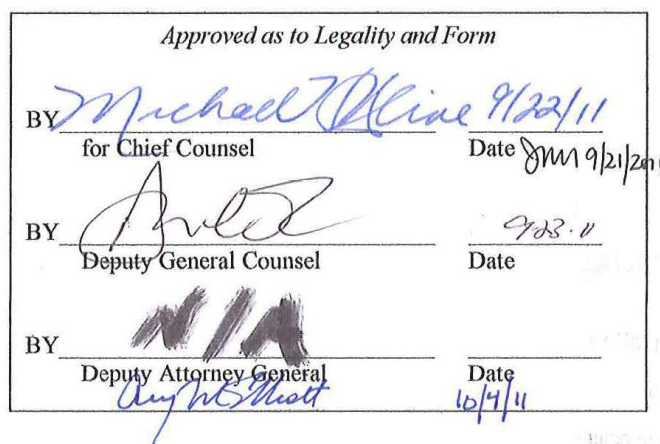 Approved as to Legality and Form
BY Michael Kline 9/22/11
for Chief Counsel Date JMM 9/21/2011
BY 9-23-11
Deputy General Counsel Date
BY N/A
Deputy Attorney General Date
Amy M Elliott 10/4/11